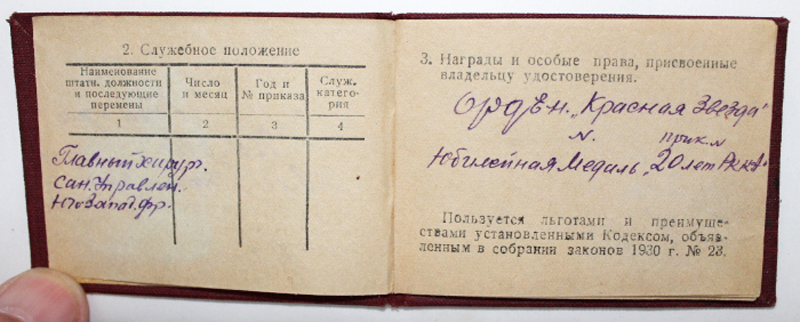 2. Служебное положение
Наименование
штатн. должности
и последующие
перемены
Число
и месяц
Год и
№ приказа
Служ.
катего-
рия
1
2
3
4
Главный хирург.
Сан. Управлен.
Юго Запад. фр.
3. Награды и особые права, присвоенные
владельцу удостоверения.
Орден „Красная Звезда"
N. прик. N
Юбилейная Медаль „20 лет РККА"
Пользуется льготами и преимуще-
ствами установленными Кодексом, объяв-
ленным в собрании законов 1930 г. № 23.